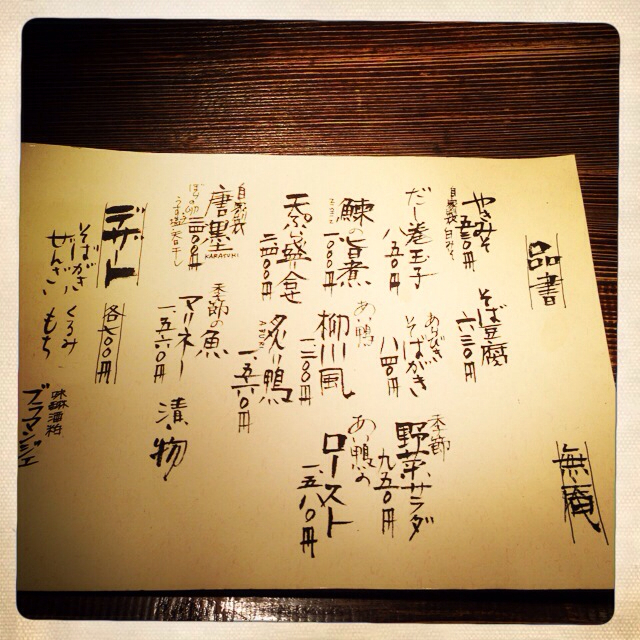 品書
無庵
やきみそ
自家製白みそ
五〇〇円
そば豆腐
六三〇円
だし巻玉子
八五〇円
あらびき
そばがき
八四〇円
季節
野菜サラダ
九五〇円
鰊の旨煮
一〇〇〇円
あい鴨
柳川風
一二〇〇円
あい鴨の
ロースト
一五八〇円
天ぷら盛合せ
二四〇〇円
炙り鴨
一五六〇円
自家製
唐墨
KARASUMI
季節の魚
マリネー
一五六〇円
漬物
デザート
各七〇〇円
そばがき
ぜんざい
くるみ
もち
味醂酒粕
ブラマンジェ